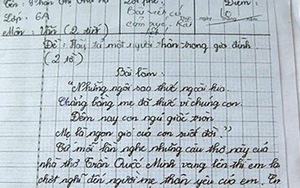 Lớp: 6A
Môn: Văn (2 tiết)
Đề: Hãy tả một người thân trong gia đình
(2 tiết)
Bài làm
"Những ngôi sao thức ngoài kia
Chẳng bằng mẹ đã thức vì chúng con.
Đêm nay con ngủ giấc tròn
Mẹ là ngọn gió của con suốt đời."
Cứ mỗi lần nghe những câu thơ này của
nhà thơ Trần Quốc Minh vang lên thì em lại
chợt nghĩ đến người mẹ thân yêu của em. Em